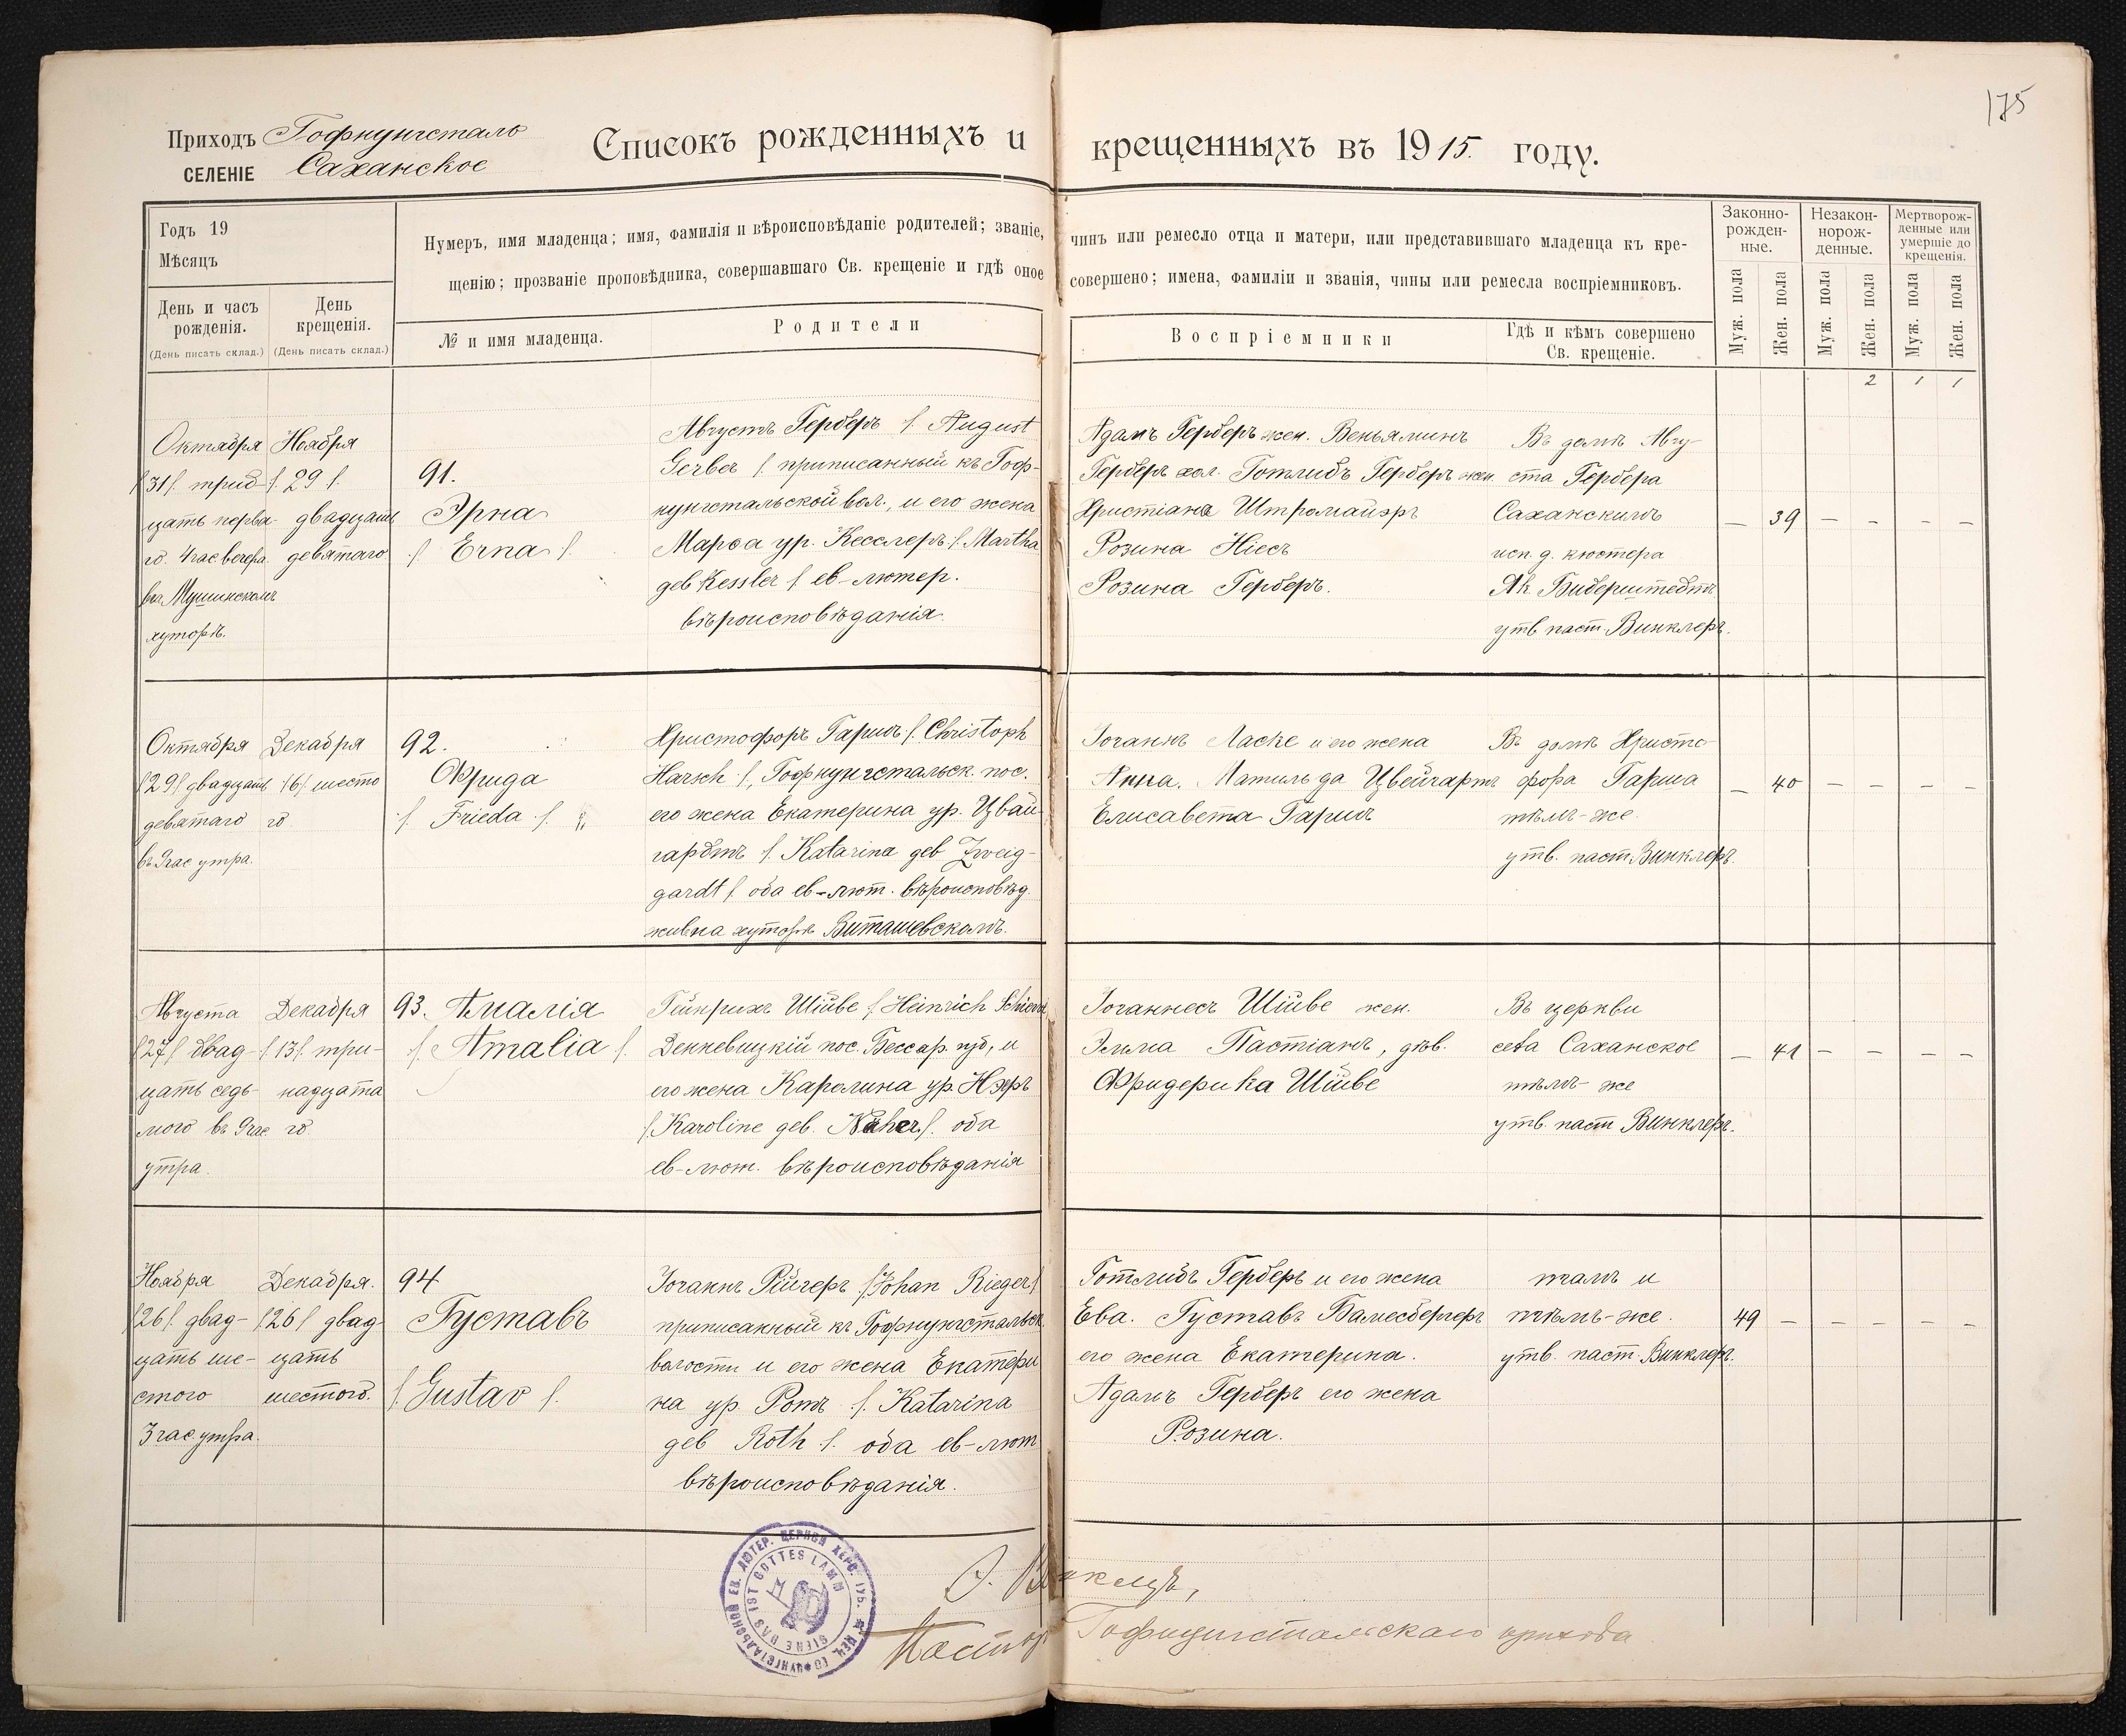 175
Приходъ Гофнунгсталь
СЕЛЕНІЕ Саханское
Списокъ рожденныхъ и крещенныхъ въ 1915. году.
Годъ 19
Мѣсяцъ
День и часъ рожденія.
(День писать склад.)
День крещенія.
(День писать склад.)
Нумеръ, имя младенца; имя, фамилія и вѣроисповѣданіе родителей; званіе, чинъ или ремесло отца и матери, или представившаго младенца къ кре-
щенію; прозваніе проповѣдника, совершавшаго Св. крещеніе и гдѣ оное совершено; имена, фамиліи и званія, чины или ремесла воспріемниковъ.
№ и имя младенца.
Родители
Воспріемники
Гдѣ и кѣмъ совершено
Св. крещеніе.
Законно-
рожден-
ные.
Незакон-
норож-
денные.
Мертворож-
денные или
умершіе до
крещенія.
Муж. пола
Жен. пола
Муж. пола
Жен. пола
Муж. пола
Жен. пола
2 1 1
Октября
/31/. трид-
цать перва-
го. 4 час вечера.
въ Мушинскомъ
хуторѣ.
Ноября
/. 29 /.
двадцать
девятаго
91.
Эрна
/. Erna /.
Августъ Герберъ /. August
Gerber /. приписанный къ Гоф-
нунгстальской вол., и его жена
Марѳа ур. Кесслеръ /. Martha
геб Kessler /. ев-лютер.
вѣроисповѣданія.
Адамъ Герберъ жен. Веньяминъ
Герберъ хол. Готлибъ Герберъ жен.
Христіана Штромайэръ
Розина Ніесъ
Розина Герберъ.
Въ домѣ Авгу-
ста Гербера
Саханскимъ
исп. д. кюстера
Як. Биберштедтъ
утв. паст. Винклеръ.
— 39 — - - -
Октября
/29/ двадцать
девятаго
въ 9 час утра.
Декабря
/6/. шесто
го
92.
Фрида
/. Frieda /.
Христофоръ Гаршъ /. Christoph
Harsch /., Гофнунгстальск. пос.
его жена Екатерина ур. Цвай-
гардтъ /. Katarina геб Zweig-
gardt /. оба ев-лют. вѣроисповѣд.
жив на хуторѣ Виташевскомъ.
Іоганнъ Ласке и его жена
Анна. Матильда Цвейгартъ
Елисавета Гаршъ
Въ домѣ Христо
фора Гарша
тѣмъ-же.
утв. паст. Винклеръ.
— 40 — — - -
Августа
/27/ двад-
цать седь-
мого въ 9 час.
утра.
Декабря
/. 13/. три-
надцата
го.
93. Амалія
/. Amalia /.
Гейнрихъ Шиве /. Heinrich
Денневицкій пос. Бессар. губ., и
его жена Каролина ур. Нэеръ
/. Karoline геб. Näher /. оба
ев-лют. вѣроисповѣданія
Іоганнесъ Шиве жен.
Эмма Пастіанъ, дѣв.
Фридерика Шиве
Въ церкви
села Саханское
тѣмъ-же
утв. паст Винклеръ.
— 41 — - - -
Ноября
/26/. двад-
цать ше-
стого
3 час. утра.
Декабря.
/26/ двад-
цать
шестого.
94
Густавъ
/. Gustav /.
Іоганнъ Ригеръ /. Johan Rieger /.
приписанный къ Гофнунгстальск.
волости и его жена Екатери
на ур. Ротъ /. Katarina
геб Roth /. оба ев-лют
вѣроисповѣданія.
Готлибъ Герберъ и его жена
Ева. Густавъ Бамесбергеръ
его жена Екатерина.
Адамъ Герберъ его жена
Розина.
тамъ и
тѣмъ-же.
утв. паст. Винклеръ.
49 — - - - -
SIEHE DAS IST GOTTES LAMM
Пасторъ Гофнунгстальскаго прихода